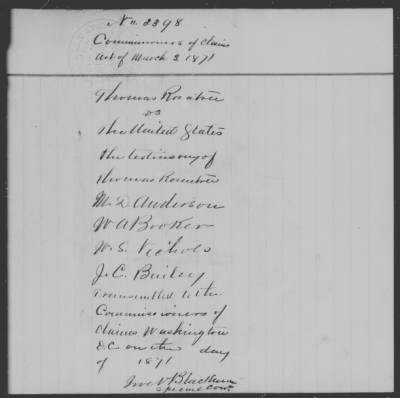 No. 2298
Commissioners of Claims
Act of March 3 1871
Thomas Rountree
vs
The United States
The testimony of
Thomas Rountree
M. D. Anderson
W A Booker
W. S. Nichols
J. C. Bailey
transmitted to the
Commissioners of
Claims Washington
D.C. on the day
of 1871
Blackburn
Special Com.